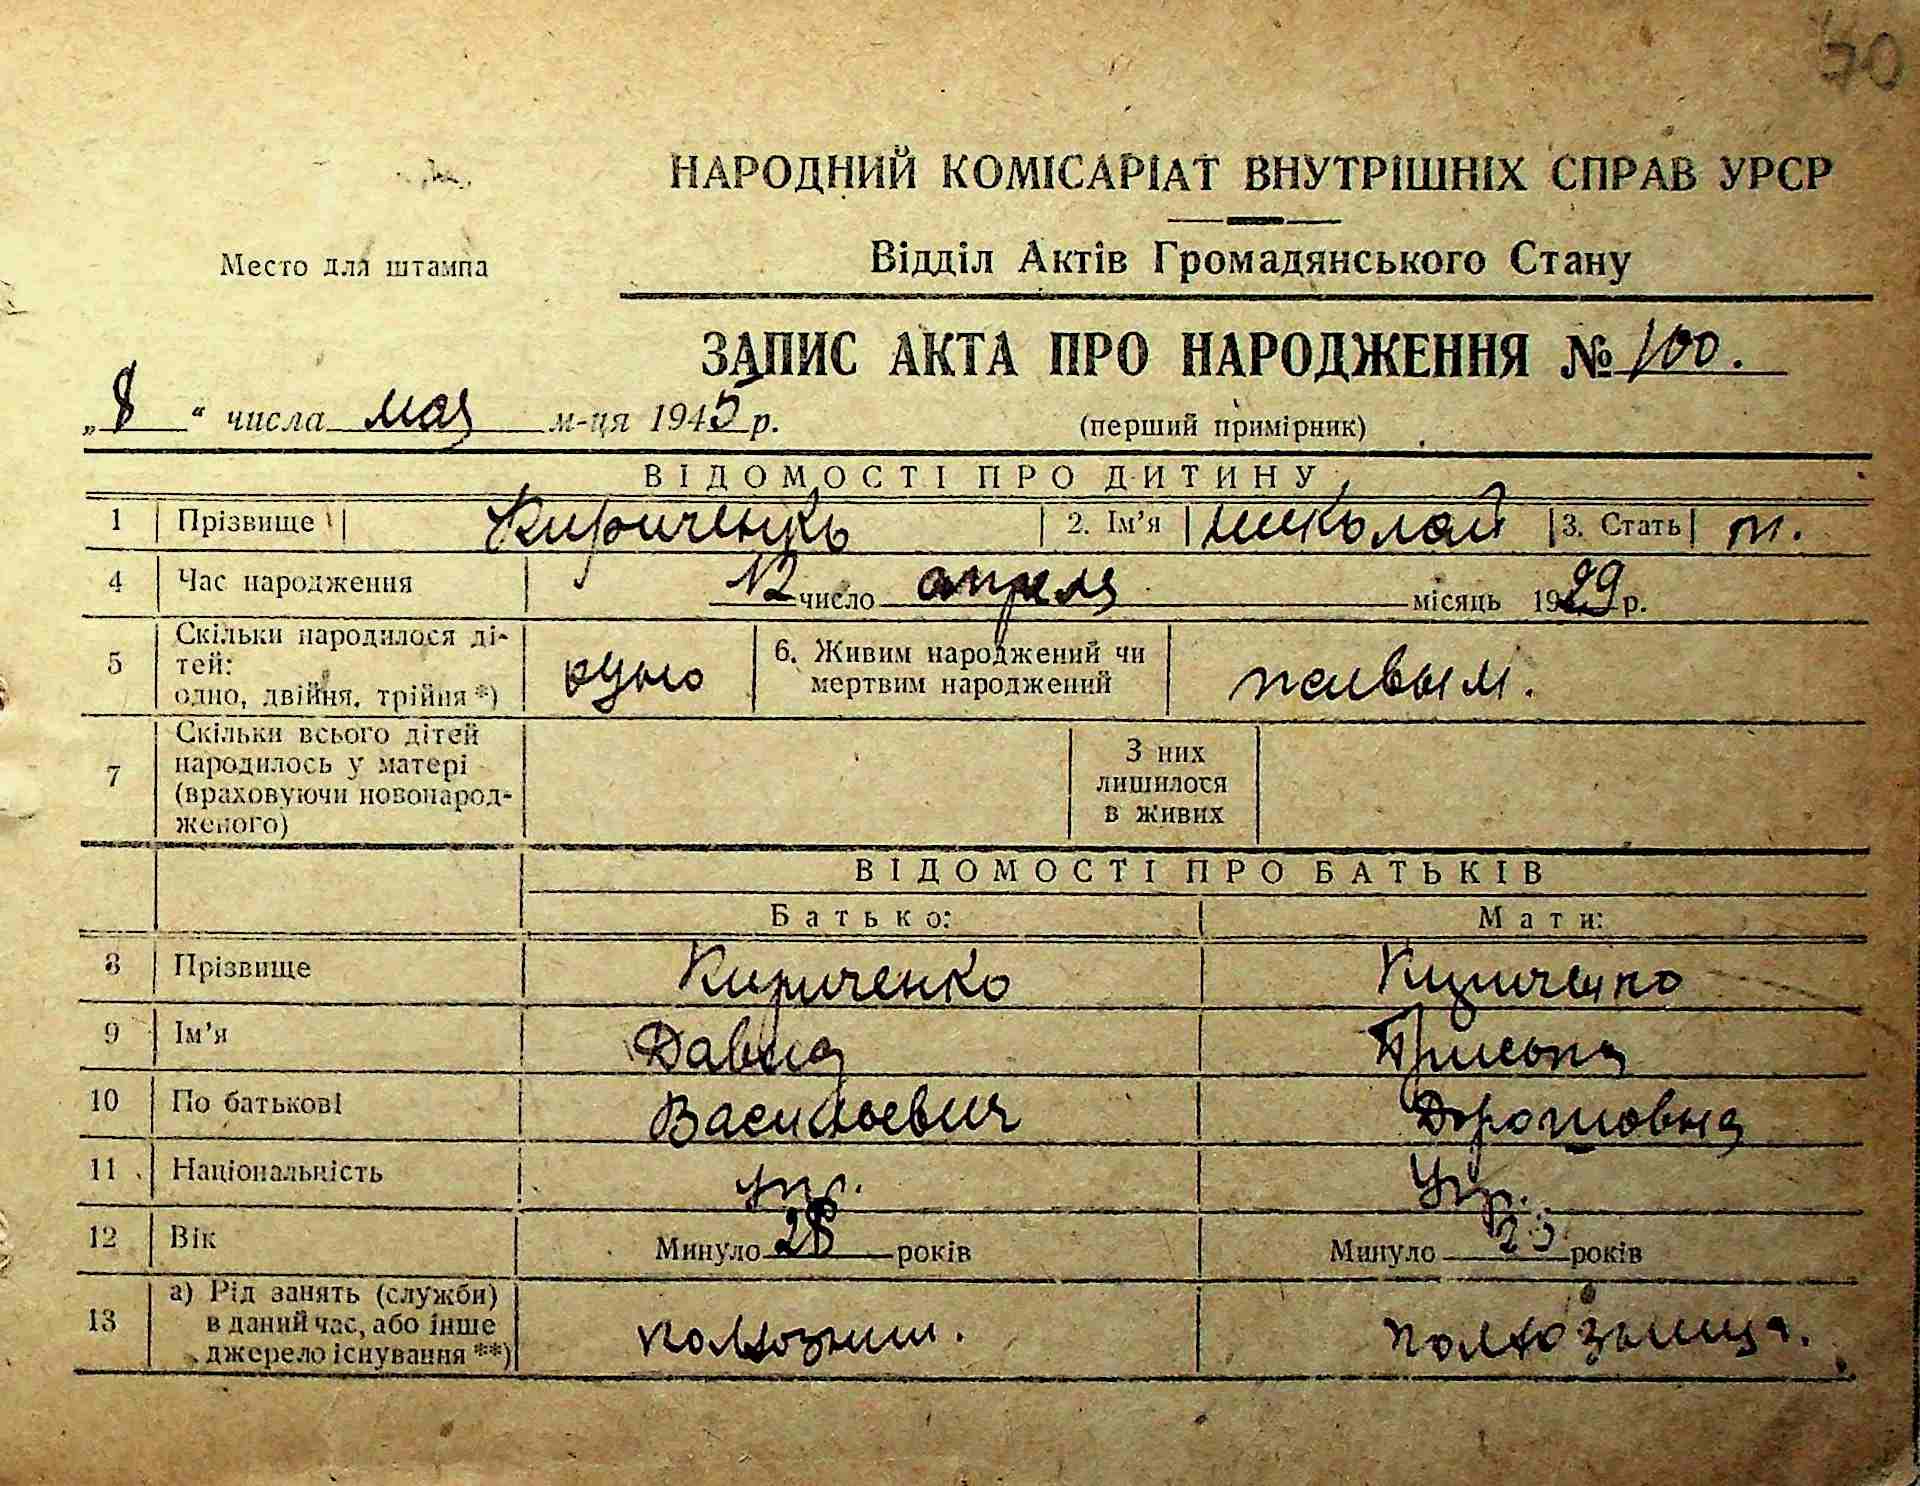 70
НАРОДНИЙ КОМІСАРІАТ ВНУТРІШНІХ СПРАВ УРСР
Место для штампа
Відділ Актів Громадянського Стану
ЗАПИС АКТА ПРО НАРОДЖЕННЯ № 100.
„8“ числа мая м-ця 1945 р.
(перший примірник)
ВІДОМОСТІ ПРО ДИТИНУ
1 Прізвище Кириченко 2. Ім'я Николай 3. Стать м.
4 Час народження 12 число апреля місяць 1929 р.
5 Скільки народилося ді-
тей:
одно, двійня, трійня *) одно
6. Живим народжений чи
мертвим народжений живым.
7 Скільки всього дітей
народилось у матері
(враховуючи новонарод-
женого)
З них
лишилося
в живих
ВІДОМОСТІ ПРО БАТЬКІВ
Батько: Мати:
8 Прізвище Кириченко Кириченко
9 Ім'я Давид Приська
10 По батькові Васильевич Дорошовна
11 Національність укр. Укр.
12 Вік Минуло 28 років Минуло років
13 а) Рід занять (служби)
в даний час, або інше
джерело існування **) колхозник. колхозница.